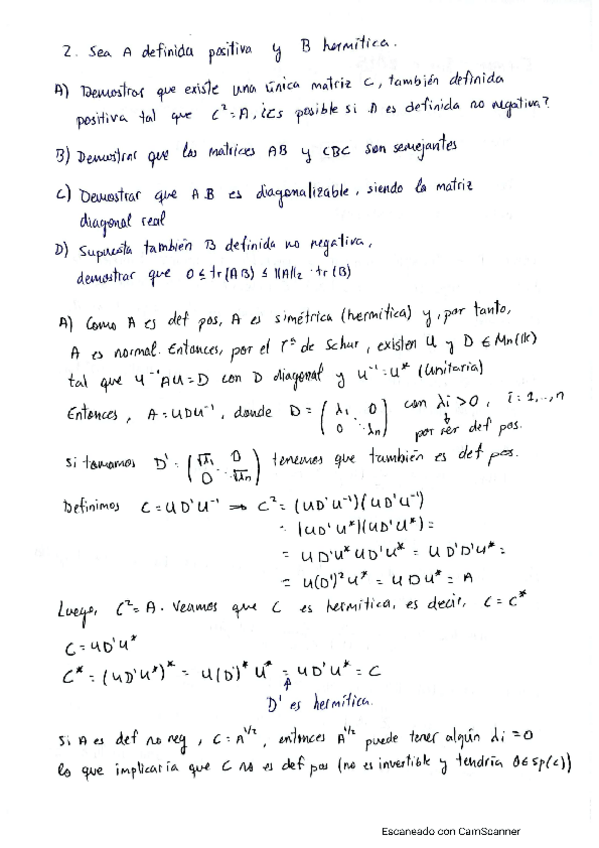 2. Sea A definida positiva y B hermítica.
A) Demostrar que existe una única matriz C, también definida
positiva tal que C²=A, ¿Es posible si A es definida no negativa?
B) Demostrar que las matrices AB y CBC son semejantes
C) Demostrar que AB es diagonalizable, siendo la matriz
diagonal real
D) Supuesta también B definida no negativa,
demostrar que 0 ≤ tr(AB) ≤ ||A||₂ · tr(B)
A) Como A es def pos, A es simétrica (hermítica) y, por tanto,
A es normal. Entonces, por el Tª de Schur, existen U y D ∈ Mn(IK)
tal que U⁻¹AU=D con D diagonal y U⁻¹=U* (Unitaria)
Entonces, A=UDU⁻¹, donde D = (λ₁ 0 0 ⋱ λn) con λi>0, i=1,..,n
por ser def pos.
Si tomamos D' = (√λ₁ 0 0 ⋱ √λn) tenemos que también es def pos.
Definimos C=UD'U⁻¹ → C² = (UD'U⁻¹)(UD'U⁻¹)
= (UD'U*)(UD'U*) =
= UD'U*UD'U* = UD'D'U* =
= U(D')²U* = UDU* = A
Luego, C²=A. Veamos que C es hermítica, es decir, C=C*
C=UD'U*
C* = (UD'U*)* = U(D')*U* = UD'U* = C
D' es hermítica.
Si A es def no neg, C=A^1/2, entonces A^1/2 puede tener algún λi=0
lo que implicaría que C no es def pos (no es invertible y tendría 0∈Sp(C))
Escaneado con CamScanner